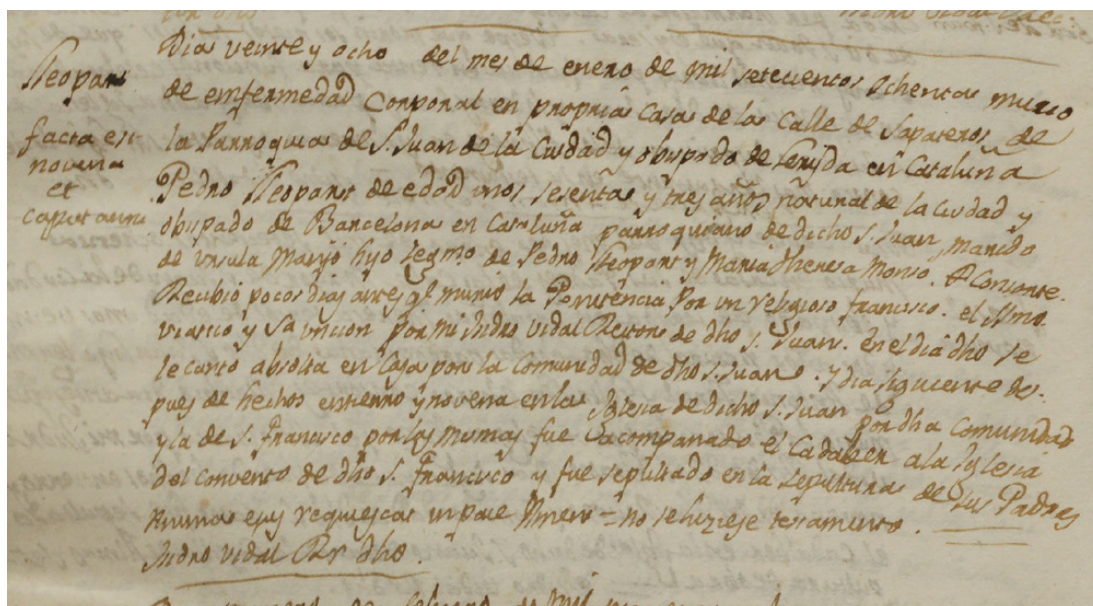 Dia veinte y ocho del mes de enero de mil setecientos ochenta murio
de enfermedad Corporal en propria Casa de la Calle de Sapateros de
la Parroquia de S. Juan de la Ciudad y obispado de Lerida en Cataluña
Pedro Lleopart de edad unos sesenta y tres años natural de la Ciudad y
obispado de Barcelona en Cataluña parroquiano de dicho S. Juan, marido
de Ursula hijo legmo de Pedro Lleopart y Maria Theresa
Recibió pocos dias antes q.l murio la Penitencia por un religioso francisco. el SSmo
viatico y Sa uncion por mi Isidro Vidal Retor de dho S. Juan. En el dia dho se
le canto absolta en Casa por la Comunidad de dho S. Juan. Y dia siguiente des-
pues de hechos entierro y novena en la Iglesia de dicho S. Juan por dha Comunidad
y la de S. Francisco por los mismos fue acompanado el Cadaber a la Iglesia
del Convento de dho S. Francisco y fue sepultado en la sepultura de sus Padres
Anima ejus requiescat in pace Amen = no se hiziese testamento.
Isidro Vidal Rr dho.
Lleopart
facta est
novena
et